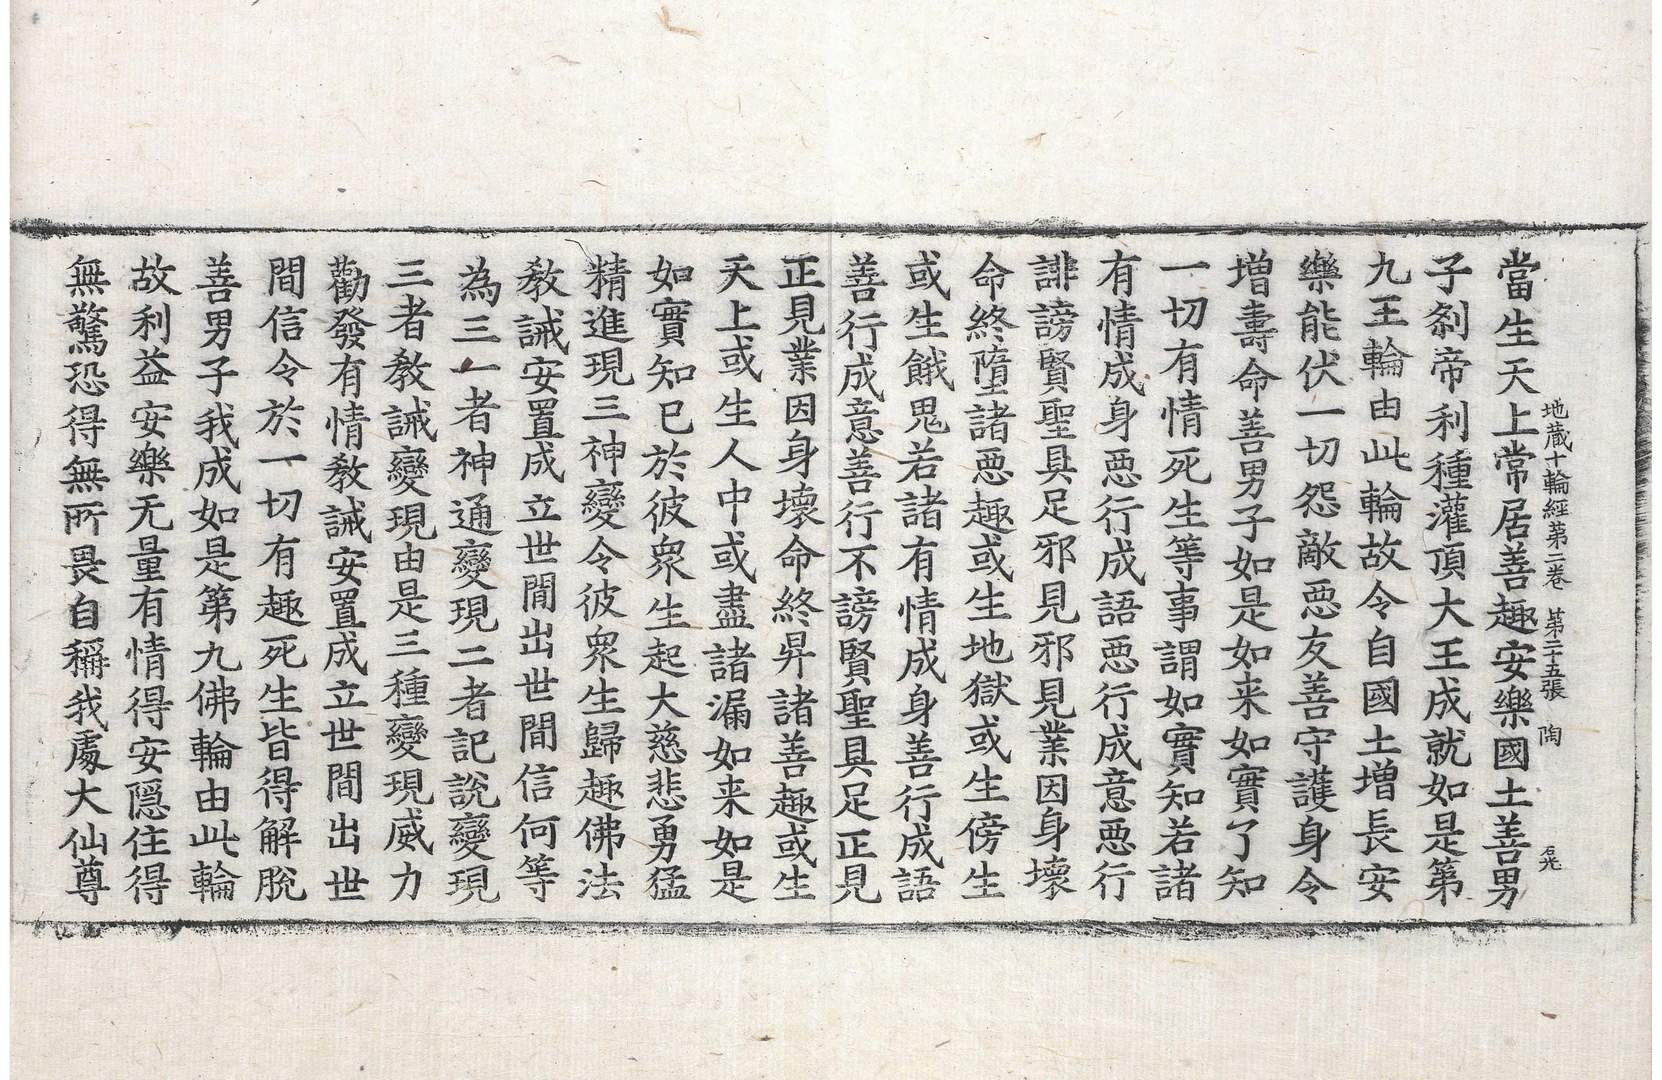 地蔵十輪經第二卷 第二十五張 陶
石光
當生天上常居善趣安樂國土善男
子刹帝利種灌頂大王成就如是第
九王輪由此輪故令自國土增長安
樂能伏一切怨敵惡友善守護身令
增壽命善男子如是如来如實了知
一切有情死生等事謂如實知若諸
有情成身惡行成語惡行成意惡行
誹謗賢聖具足邪見邪見業因身壞
命終墮諸惡趣或生地獄或生傍生
或生餓鬼若諸有情成身善行成語
善行成意善行不謗賢聖具足正見
正見業因身壞命終昇諸善趣或生
天上或生人中或盡諸漏如来如是
如實知已於彼衆生起大慈悲勇猛
精進現三神變令彼衆生歸趣佛法
教誡安置成立世間出世間信何等
為三一者神通變現二者記說變現
三者教誡變現由是三種變現威力
勸發有情教誡安置成立世間出世
間信令於一切有趣死生皆得解脫
善男子我成如是第九佛輪由此輪
故利益安樂无量有情得安隱住得
無驚恐得無所畏自稱我處大仙尊